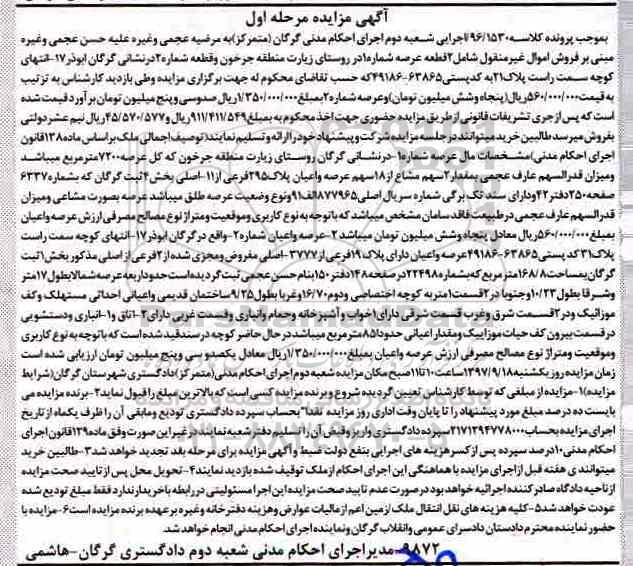 آگهی مزایده مرحله اول
بموجب پرونده کلاسه ۹۶/۱۵۳۰/اجرایی شعبه دوم اجرای احکام مدنی گرگان (متمرکز)به مرضیه عجمی وغیره علیه حسن عجمی وغیره
مبنی بر فروش اموال غیرمنقول شامل۲قطعه عرصه شماره۱در روستای زیارت منطقه جرخون وقطعه شماره۲درنشانی گرگان ابوذر۱۷-انتهای
کوچه سمت راست پلاک۲۱به کدپستی۶۳۸۶۵-۴۹۱۸۶که حسب تقاضای محکوم له جهت برگزاری مزایده وطی بازدید کارشناس به ترتیب
به قیمت۵۶۰/۰۰۰/۰۰۰ریال(پنجاه وشش میلیون تومان)وعرصه شماره۲بمبلغ۱/۳۵۰/۰۰۰/۰۰۰ریال صدوسی وپنج میلیون تومان برآورد قیمت شده
است که پس از جری تشریفات قانونی از طریق مزایده حضوری جهت اخذ محکوم به بمبلغ۹۱۱/۴۱۱/۵۴۹ریال و۴۵/۵۷۰/۵۷۷ریال نیم عشر دولتی
بفروش میرسد طالبین خرید میتوانند در جلسه مزایده شرکت و پیشنهاد خود را ارائه و تسلیم نمایند(توصیف اجمالی ملک براساس ماده۱۳۸قانون
اجرای احکام مدنی)مشخصات مال عرصه شماره۱-درنشانی گرگان روستای زیارت منطقه جرخون که کل عرصه۷۲۰مترمربع میباشد
ومیزان قدرالسهم عارف عجمی بمقدار۲سهم مشاع از۱۸سهم عرصه واعیان پلاک۲۹۵فرعی از۱۱-اصلی بخش۴ثبت گرگان که بشماره۶۳۳۷
صفحه۲۵۰دفتر۴۲ودارای سند تک برگی شماره سریال اصلی۸۷۷۹۶۵الف۹۱ونوع وضعیت عرصه طلق میباشد عرصه بصورت مشاعی ومیزان
قدرالسهم عارف عجمی درطبیعت فاقد سامان مشخص میباشد که باتوجه به نوع کاربری وموقعیت ومتراژ نوع مصالح مصرفی ارزش عرصه واعیان
بمبلغ۵۶۰/۰۰۰/۰۰۰ریال معادل پنجاه وشش میلیون تومان میباشد ۲-عرصه واعیان شماره۲-واقع در گرگان ابوذر۱۷-انتهای کوچه سمت راست
پلاک۳۱کد پستی۶۳۸۶۵-۴۹۱۸۶عرصه واعیان دارای پلاک۱۹فرعی از۳۷۷۷-اصلی مفروض ومجزی شده از۲فرعی از اصلی مذکور بخش۱ثبت
گرگان بمساحت۱۶۸/۸مترمربع که بشماره۲۲۴۹۸درصفحه۱۴۸دفتر۱۵۰بنام حسن عجمی ثبت گردیده است حدود اربعه عرصه شمالا بطول۱۷متر
وشرقا بطول۱۰/۲۳وجنوبا در۲قسمت۱متر به کوچه اختصاصی ودوم۱۶/۷۰وغربا بطول۹/۳۵ساختمان قدیمی واعیانی احداثی مستهلک وکف
موزائیک ودر۲قسمت شرق وغرب قسمت شرقی دارای۱خواب و آشپزخانه وحمام وانباری وقسمت غربی دارای۲-اتاق و۱-انباری ودستشویی
در قسمت بیرون کف حیات موزاییک ومقدار اعیانی حدودا۸۵مترمربع میباشد در حال حاضر کوچه در سند قید شده است که باتوجه به نوع کاربری
وموقعیت ومتراژ نوع مصالح مصرفی ارزش عرصه واعیان بمبلغ۱/۳۵۰/۰۰۰/۰۰۰ریال معادل یکصدو سی وپنج میلیون تومان ارزیابی شده است
زمان مزایده روز یکشنبه۱۳۹۷/۹/۱۸ساعت۱۰تا۱۱صبح مکان مزایده شعبه دوم اجرای احکام مدنی(متمرکز)دادگستری شهرستان گرگان(شرایط
مزایده)۱-مزایده از مبلغی که توسط کارشناس تعیین گردیده شروع وبرنده مزایده کسی است که بالاترین مبلغ را قبول نماید۲-برنده مزایده می
بایست ده درصد مبلغ مورد پیشنهاد را تا پایان وقت اداری روز مزایده نقدا" بحساب سپرده دادگستری تودیع ومابقی آن را ظرف یکماه از تاریخ
اجرای مزایده بحساب۲۱۷۱۲۹۴۷۷۸۰۰۰سپرده دادگستری واریز وفیش آن را تسلیم دفتر شعبه نمایند در غیر این صورت وفق ماده۱۳۹قانون اجرای
احکام مدنی۱۰درصد سپرده پس از کسر هزینه های اجرایی بنفع دولت ضبط و آگهی مزایده برای مرحله بعد تجدید خواهد شد۳-طالبین خرید
میتوانند ی هفته قبل از اجرای مزایده با هماهنگی این اجرای احکام از ملک توقیف شده بازدید نمایند۴-تحویل محل پس از تایید صحت مزایده
از ناحیه دادگاه صادر کننده اجرائیه خواهد بود در صورت عدم تایید صحت مزایده این اجرا مسئولیتی در رابطه با خریدار ندارد فقط مبلغ تودیع شده
عودت خواهد شد۵-کلیه هزینه های نقل انتقال ملک از مین اعم از مالیات عوارض وهزینه دفترخانه وغیره بر عهده برنده مزایده است۶-مزایده با
حضور نماینده محترم دادستان دادسرای عمومی وانقلاب گرگان ونماینده اجرای احکام مدنی انجام خواهد شد.
۹۸۷۲-مدیراجرای احکام مدنی شعبه دوم دادگستری گرگان-هاشمی